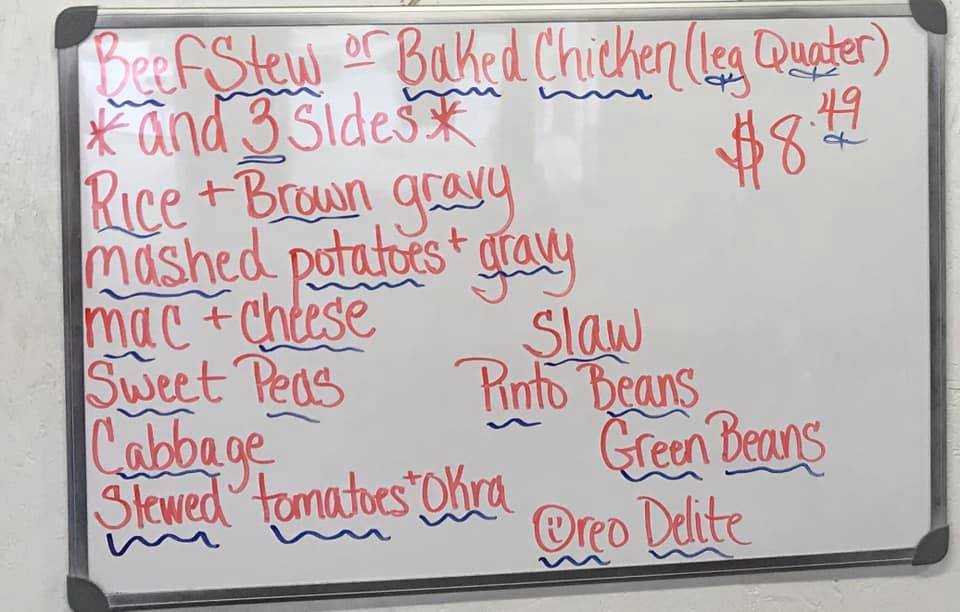 Beef Stew or Baked Chicken (leg Quater)
*and 3 sides*
$8.49
Rice + Brown gravy
mashed potatoes + gravy
mac + cheese
Slaw
Sweet Peas
Pinto Beans
Cabbage
Green Beans
Stewed tomatoes + Okra
Oreo Delite